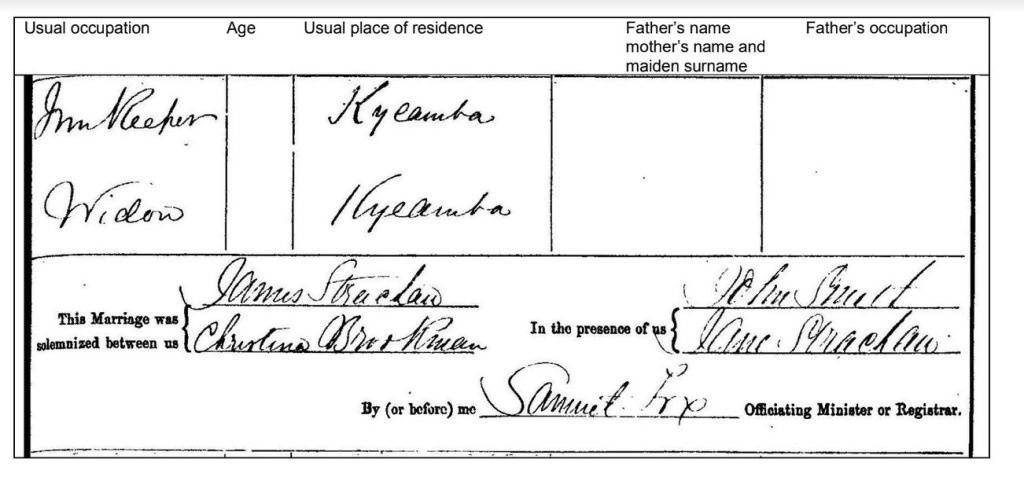 Usual occupation Age Usual place of residence Father's name Father's occupation
mother's name and
maiden surname
Inn Keeper Kyeamba
Widow Kyeamba
James Strachan John Smith
This Marriage was
solemnized between us Christina Brookman In the presence of us Jane Strachan
By (or before) me Samuel Fox Officiating Minister or Registrar.